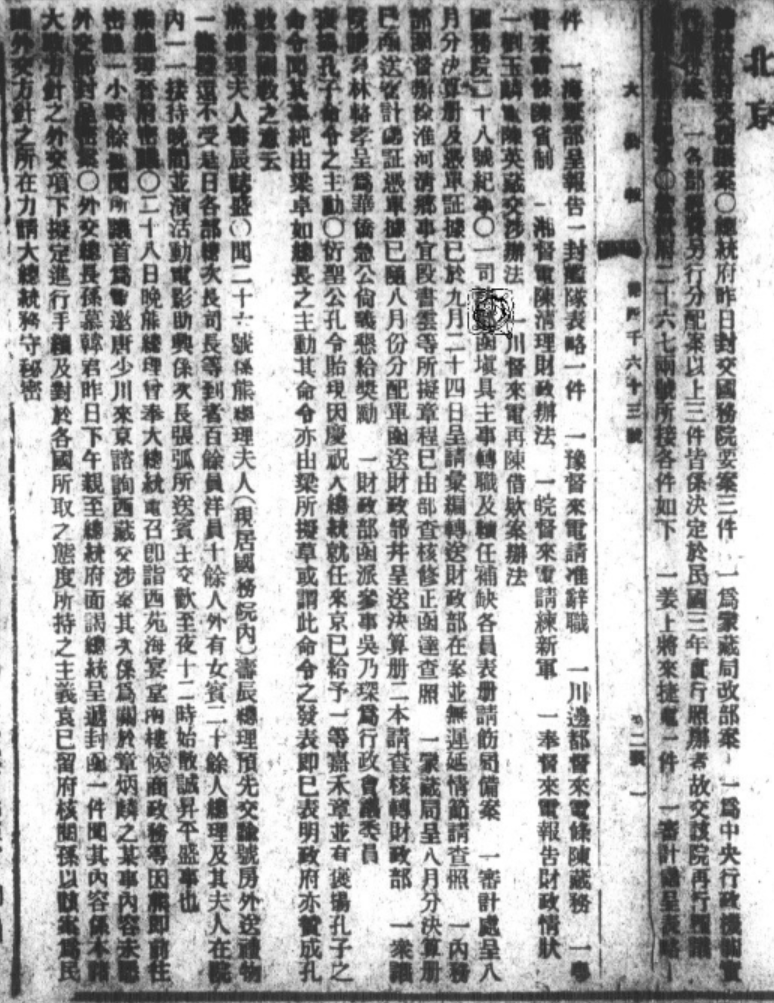 北京
總統府封交國務院要案〇總統府昨日封交國務院要案三件 一爲蒙藏局改部案 一爲中央行政機關實
行 案 一各部 另行分配案以上三件皆係決定於民國三年實行照辦者故交該院再行 議
〇總統府二十六七兩號所接各件如下 一姜上將來捷電一件 一審計處呈表略一
大 報
第四千六十三號
二張
件 一海軍部呈報告一封艦隊表略一件 一豫督來電請准辭職 一川邊都督來電條陳藏務 一粵
督來電條陳省制 一湘督電陳清理財政辦法 一皖督來電請練新軍 一奉督來電報告財政情狀
一劉玉麟電陳英藏交涉辦法 一川督來電再陳借欵案辦法
國務院二十八號紀事〇一司 函塡具主事轉職及續任補缺各員表册請飭局備案 一審計處呈八
月分決算册及憑單証據已於九月二十四日呈請彙編轉送財政部在案並無遲延情節請查照 一內務
部 督辦徐淮河淸鄉事宜段書雲等所擬章程已由部查核修正函達查照 一蒙藏局呈八月分決算册
已函送審計處証憑單據已隨八月份分配單函送財政部幷呈送決算册二本請查核轉財政部 一衆議
院議員林輅存呈爲華僑急公向義懇給奬勵 一財政部函派參事吳乃琛爲行政會議委員
褒揚孔子命令之主動〇衍聖公孔令貽現因慶祝大總統就任來京已給予一等嘉禾章並有褒揚孔子之
命令聞其事純由梁卓如總長之主動其命令亦由梁所擬草或謂此命令之發表即已表明政府亦贊成孔
敎爲國敎之意云
熊總理夫人壽辰誌盛〇聞二十六號係熊總理夫人(現居國務院內)壽辰總理預先交諭號房外送禮物
一概璧還不受是日各部總次長司長等到者百餘員洋員十餘人外有女賓二十餘人總理及其夫人在院
內一一接待晚間並演活動電影助興係次長張弧所送賓主交歡至夜十二時始散誠昇平盛事也
熊總理晉府密議〇二十八日晚熊總理曾奉大總統電召即詣西苑海宴堂內樓候商政務等因熊即前往
密議一小時餘據聞所議首爲電邀唐少川來京諮詢西藏交涉案其次係爲關於章炳麟之某事內容未悉
外交部封呈密案〇外交總長孫慕韓君昨日下午親至總統府面謁總統呈遞封函一件聞其內容係本諸
大政方針之外交項下擬定進行手續及對於各國所取之態度所持之主義袁已留府核閱孫以該案爲民
國外交方針之所在力請大總統務守秘密